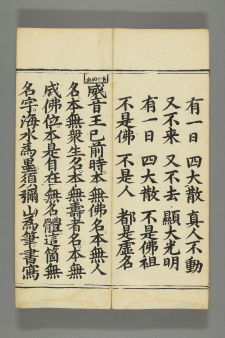 有一日 四大散 真人不動
又不来 又不去 顯大光明
有一日 四大散 不是佛祖
不是佛 不是人 都是虚名
威音王已前時本無佛名本無人
名本無衆生名本無壽者名本無
成佛位本是自在無名體這箇無
名字海水為墨須彌山為筆書寫